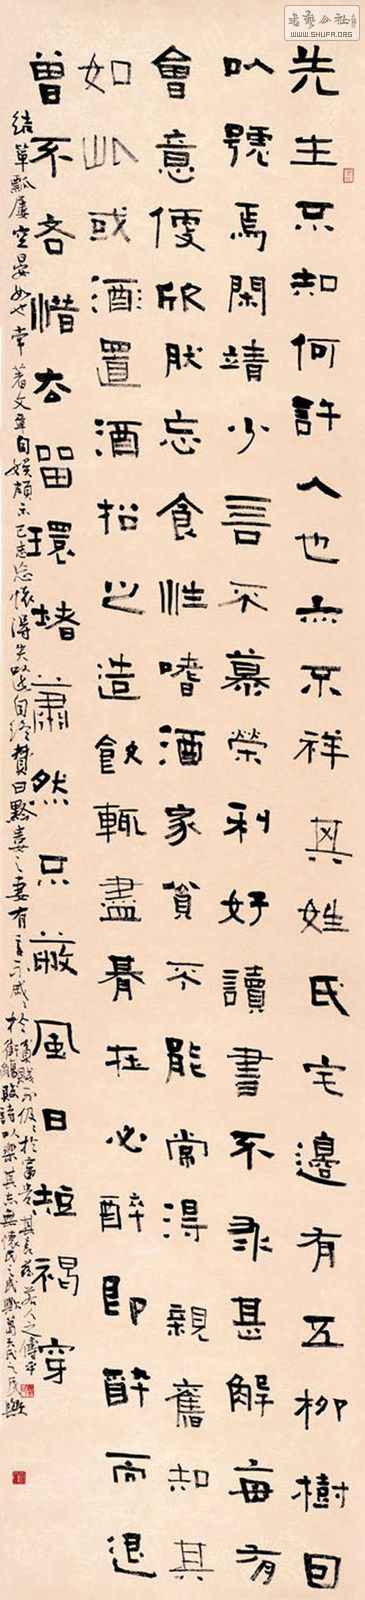 書藝公社
WWW.SHUFA.ORG
先生不知何許人也亦不祥其姓氏宅邊有五柳樹因
以號焉閑靖少言不慕榮利好讀書不求甚解每有
會意便欣然忘食性嗜酒家貧不能常得親舊知其
如此或酒置酒招之造飲輒盡朞在必醉即醉而退
曾不吝惜去留環堵蕭然不蔽風日短褐穿
結簞瓢屢空晏如也常著文章自娛頗示己志忘懷得失以此自終贊曰黔婁之妻有言不戚戚於
貧賤不汲汲於富貴其言茲若人之儔乎
銜觴賦詩以樂其志無懷氏之民歟葛天氏之民歟